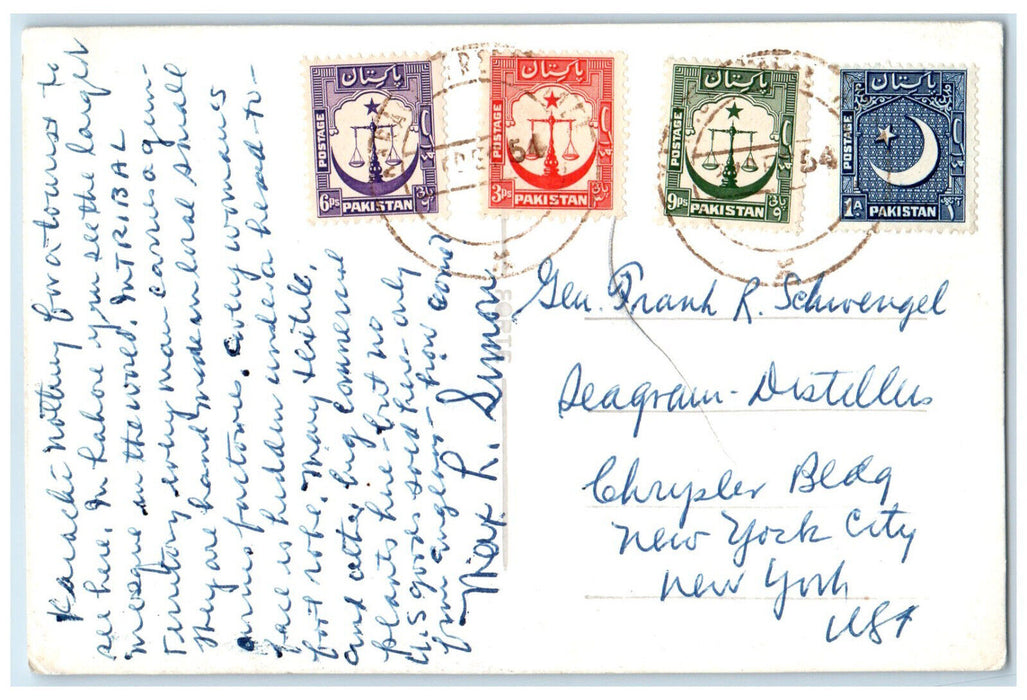 Karachi nothing for a tourist to
see here. In Lahore you see the largest
mosque in the world. In TRIBAL
Territory every man carries a gun -
They are hand made in local small
arms factories. every womans
face is hidden under a head-to-
foot robe. Many textile,
and other big commercial
plants here - but no
U.S goods sold here - only
from England - from
Max R. Simon
پاکستان
POSTAGE
6ps
PAKISTAN
پاکستان
POSTAGE
3ps
PAKISTAN
پاکستان
POSTAGE
9ps
PAKISTAN
پاکستان
POSTAGE
1A
PAKISTAN
54
54
Gen. Frank R. Schwengel
Seagram-Distillers
Chrysler Bldg
New York City
New York
USA